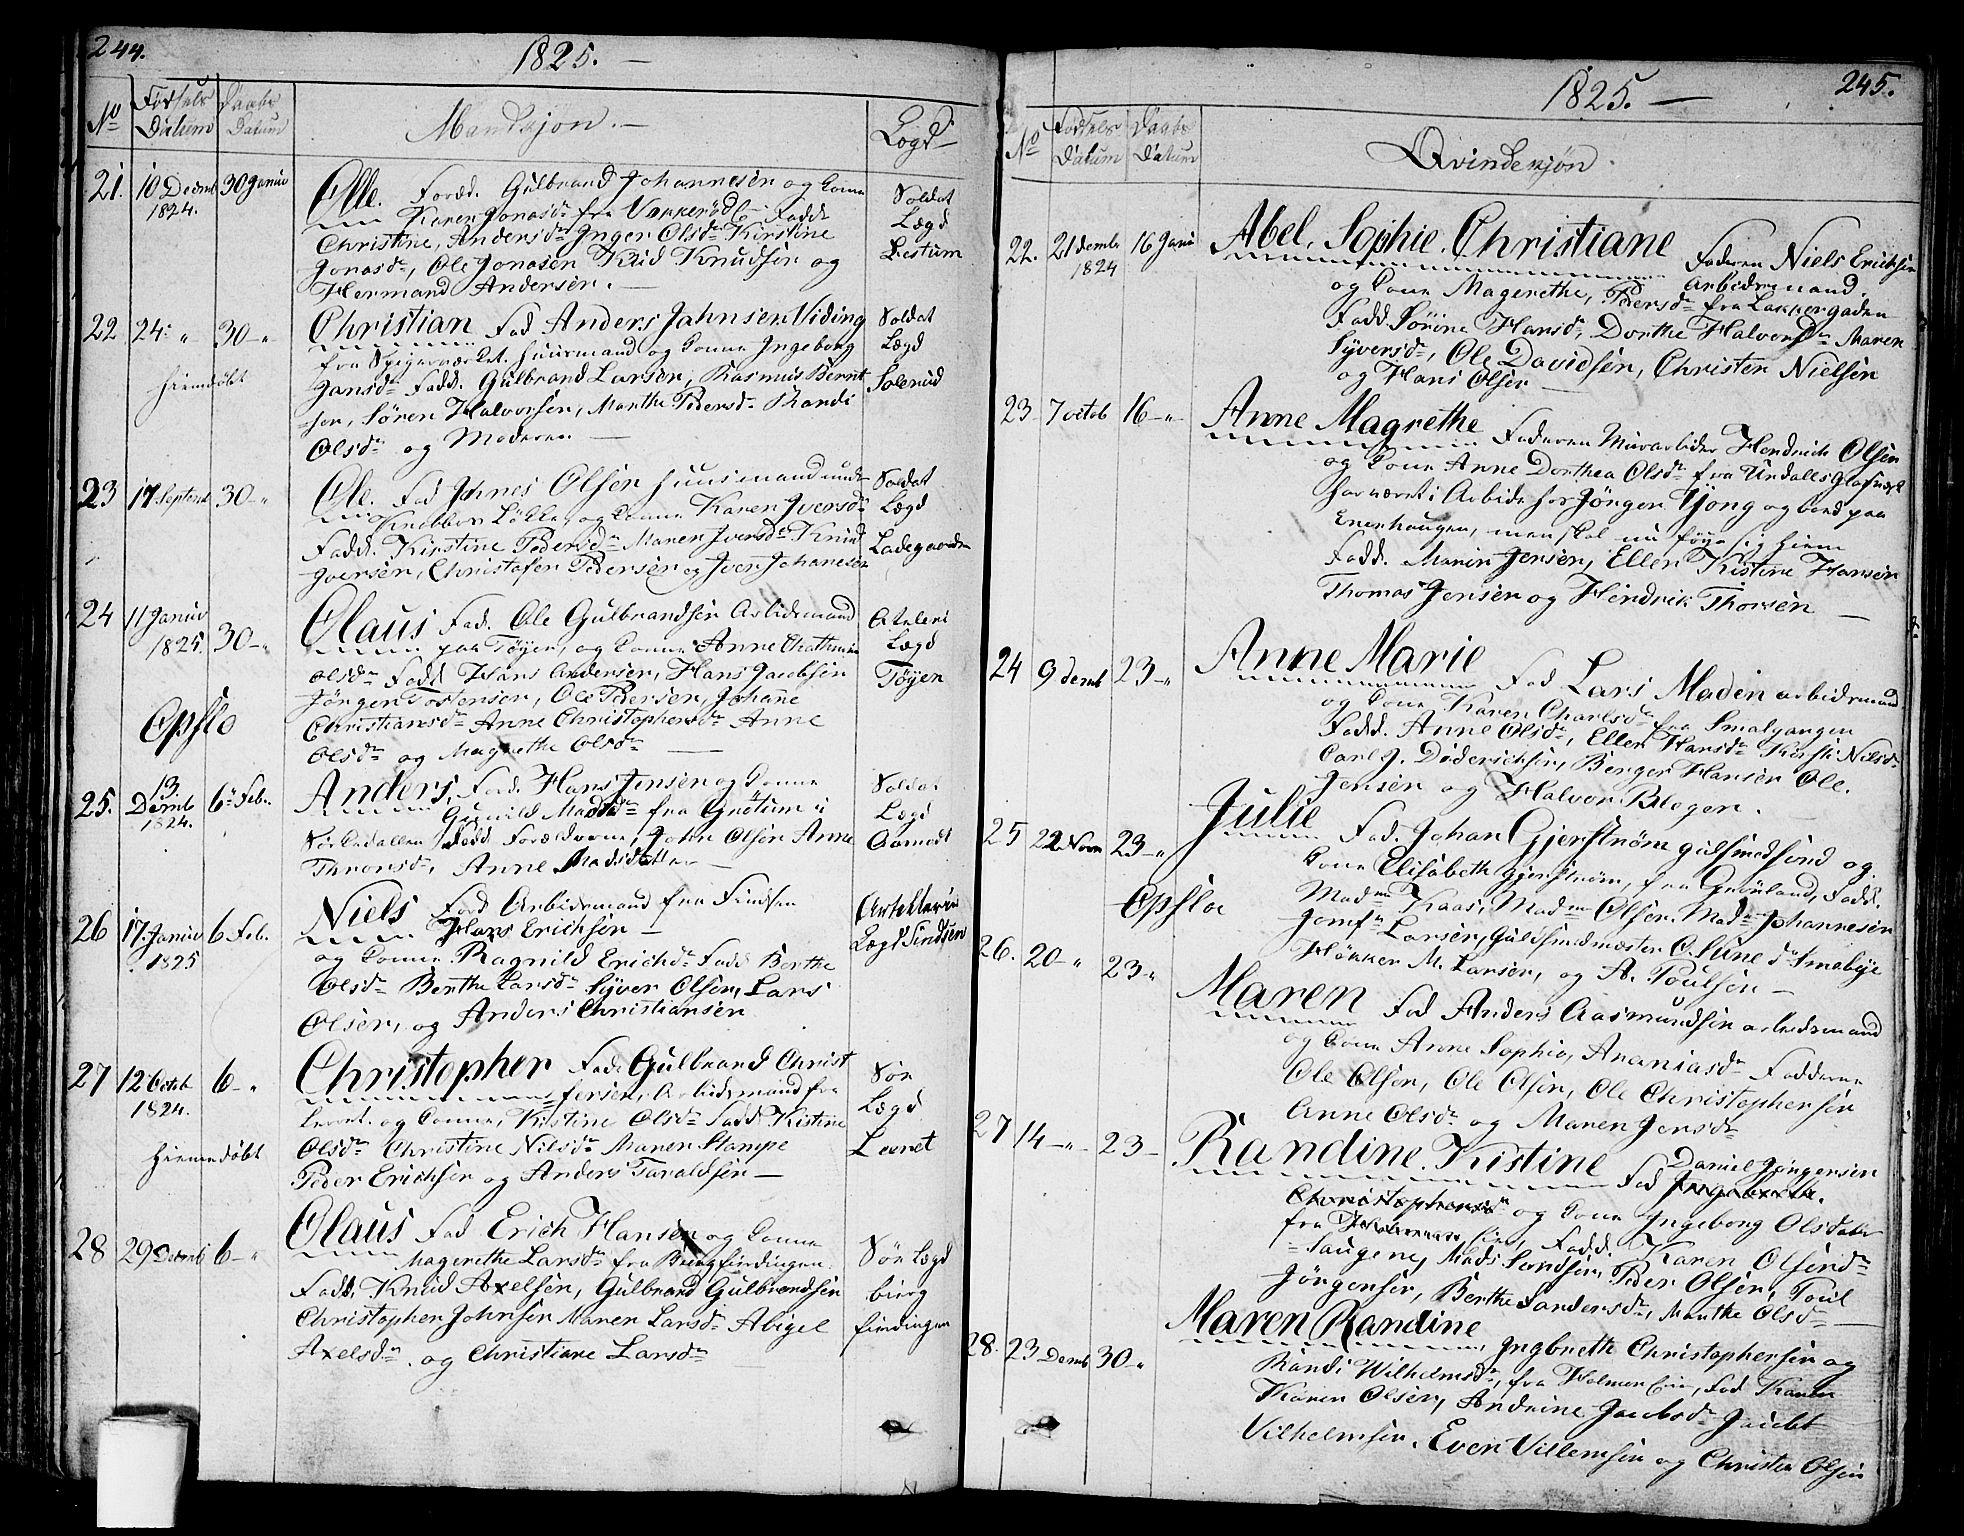 244.
1825. —
No
Fødsels Datum
Daabs Datum
Mandkjøn. —
Lægd
21. 10 Decmb 1824. 30 Januv
Olle. Foræd. Gulbrand Johannesen og Kone
Karen Jonasdr fra Vækkerød Fadd.
Christine, Andersdr Inger Olsdr Kirstine
Jonasdr, Ole Jonasen Knud Knudsen og
Hermand Andersen. —
Soldat
Lægd
Lestum
22 24 " 30 - "
hiemdøbt
Christian Fad Anders Jahnsen Viding
fra Spigerværket. huusmand og Kone Ingeborg
Jansdr Fadd. Gulbrand Larsen, Rasmus Bernt
sen, Søren Halvorsen, Marthe Pedersdr Randi
Olsdr og Moderen —
Soldat
Lægd
Solerud
23 17 Septemb 30 - "
Ole. Fad Johnes Olsen huusmand under
Løkke, og Kone Karen Iversdr
Fadd. Kirstine Pedersdr Maren Iversdr Knud
Iversen, Christofer Pedersen og Iver Johanesen
Soldat
Lægd
Ladegaarden
24 11 Januv 1825. 30 - "
Opslo
Olaus Fad. Ole Gulbrandsen Arbidsmand
paa Tøyen, og Kone Anne Chathrine
Olsdr Fadd Hans Andersen, Hans Jacobsen
Jørgen Tostensen, Ole Pedersen, Johane
Christiansdr Anne Christophersdr Anne
Olsdr og Magrethe Olsdr —
Lægd
Tøyen
25. 13. Decmb 1824. 6 Feb.
Anders. Fad. Hans Jensen og Kone
Gunild Madsdr fra Grøtum i
Sørkedallen Fadd Forældrene, John Olsen Anne
Thronsd, Anne Madsdatter —
Soldat
Lægd
Aamodt
26 17 Januv 1825 6 Feb.
Niels Fad Arbidsmand fra Sindsen
Hans Erichsen —
og Konne Ragnild Erichdr Fadd Berthe
Olsdr Berthe Larsdr Syver Olsen, Lars
Olsen, og Anders Christiansen
Artellerie
Lægd Sindsen
27 12 Octob 1824. 6 - "
hiemmedøbt
Christopher Fad. Gulbrand Christ
fersen, Arbidsmand fra
Leeret. og Konne, Kristine Olsdr Fadd Kistine
Olsdr Christine Nilsdr Maren Stampe
Peder Erichsen og Anders Taraldsen —
Sør
Lægd
Leeret
28 29 Decmb 6 - "
Olaus Fad Erich Hansen og Konne
Magrethe Larsdr fra Biergfindingen
Fadd. Knud Axelsen, Gulbrand Gulbrandsen
Christopher Johnsen Maren Larsdr Abigel
Axelsdr og Christiane Larsdr
Sør Lægd
bierg
findingen
1825. —
245.
No
Fødsels Datum
Daabs Datum
Qvindekjøn.
22. 21 Decmb 1824 16 Januv
Abel. Sophie. Christiane Faderen Niels Ericksen
Arbidsmand.
og Kone Magrethe, Pedersdr fra Lakkergaden
Fadd. Sørine Hansdr, Dorthe Halvorsdr Maren
Syversdr, Ole Davidsen, Christen Nielsen
og Hans Olsen —
23 7 octob 16 - "
Anne Magrethe Faderen Murarbider Hendrich Olsen
og Kone Anne Dorthea Olsdr fra Urdalls Glasværk
har været i Arbide hos Jørgen Young og boed paa
Enerhaugen, men skal nu føye sig hiem
Fadd. Marin Jensen, Ellen Kistine Hansen
Thomas Jensen og Hendrik Thorsen —
24 9 Decmb 23 - "
Anne Marie Fad Lars Maden arbidsmand
og Kone Karen Charlsdr fra Smalgangen
Fadd. Anne Olsdr, Ellen Hansdr Kersti Nilsdr
Carl J. Døderichsen, Berger Hansen Ole.
Jensen og Halvor Bleger.
25 22 Novm 23 - "
Opsloe
Julie Fad. Johan Gjerstrøm gulsmedsvend og
Kone Elisabeth Gjerstrøm, fra Grønland, Fadd.
Madm Kaas, Madm Olsen. Madm Johannesen
Jomfr Larsen, Guldsmedmester O. Sune dr Smebye
Høkker M. Larsen, og A. Poulsen —
26. 20 - " 23 "
Maren Fad Anders Aasmundsen arbedsmand
og Kone Anne Sophia, Ananiasdr Fadderne
Ole Olsen, Ole Olsen, Ole Christophersen
Anne Olsdr og Maren Jensdr
27 14 - " 23 -
Randine. Kistine Fad Daniel Jørgensen
og Kone Ingeborg Olsdatter
fra Fadd. Karen Olsendr
Haugene, Mads Svendsen, Peder Olsen, Poul
Jørgensen, Berthe Sandersdr, Marthe Olsdr —
28. 23 Decmb 30 - "
Maren Randine, Ingbreth Christophersen og
Randi Wilhelmsdr, fra Holmen Fad Karen
Karen Olsen, Andrine Jacobsdr Jacobt
Vilhelmsen. Even Villemsen og Christen Olsen